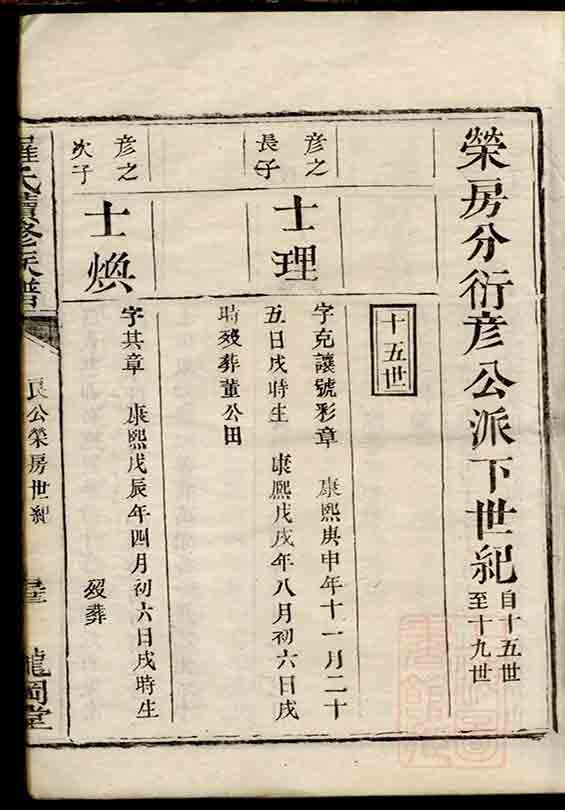 榮房分衍彥公派下世紀 自十五世至十九世
十五世
彥之長子
士理
字克讓號彩章 康熙庚申年十一月二十
五日戌時生 康熙戊戌年八月初六日戌
時歿葬董公田
彥之次子
士煥
字其章 康熙戊辰年四月初六日戌時生
歿葬
羅氏續修族譜
良公榮房世紀
龍岡堂